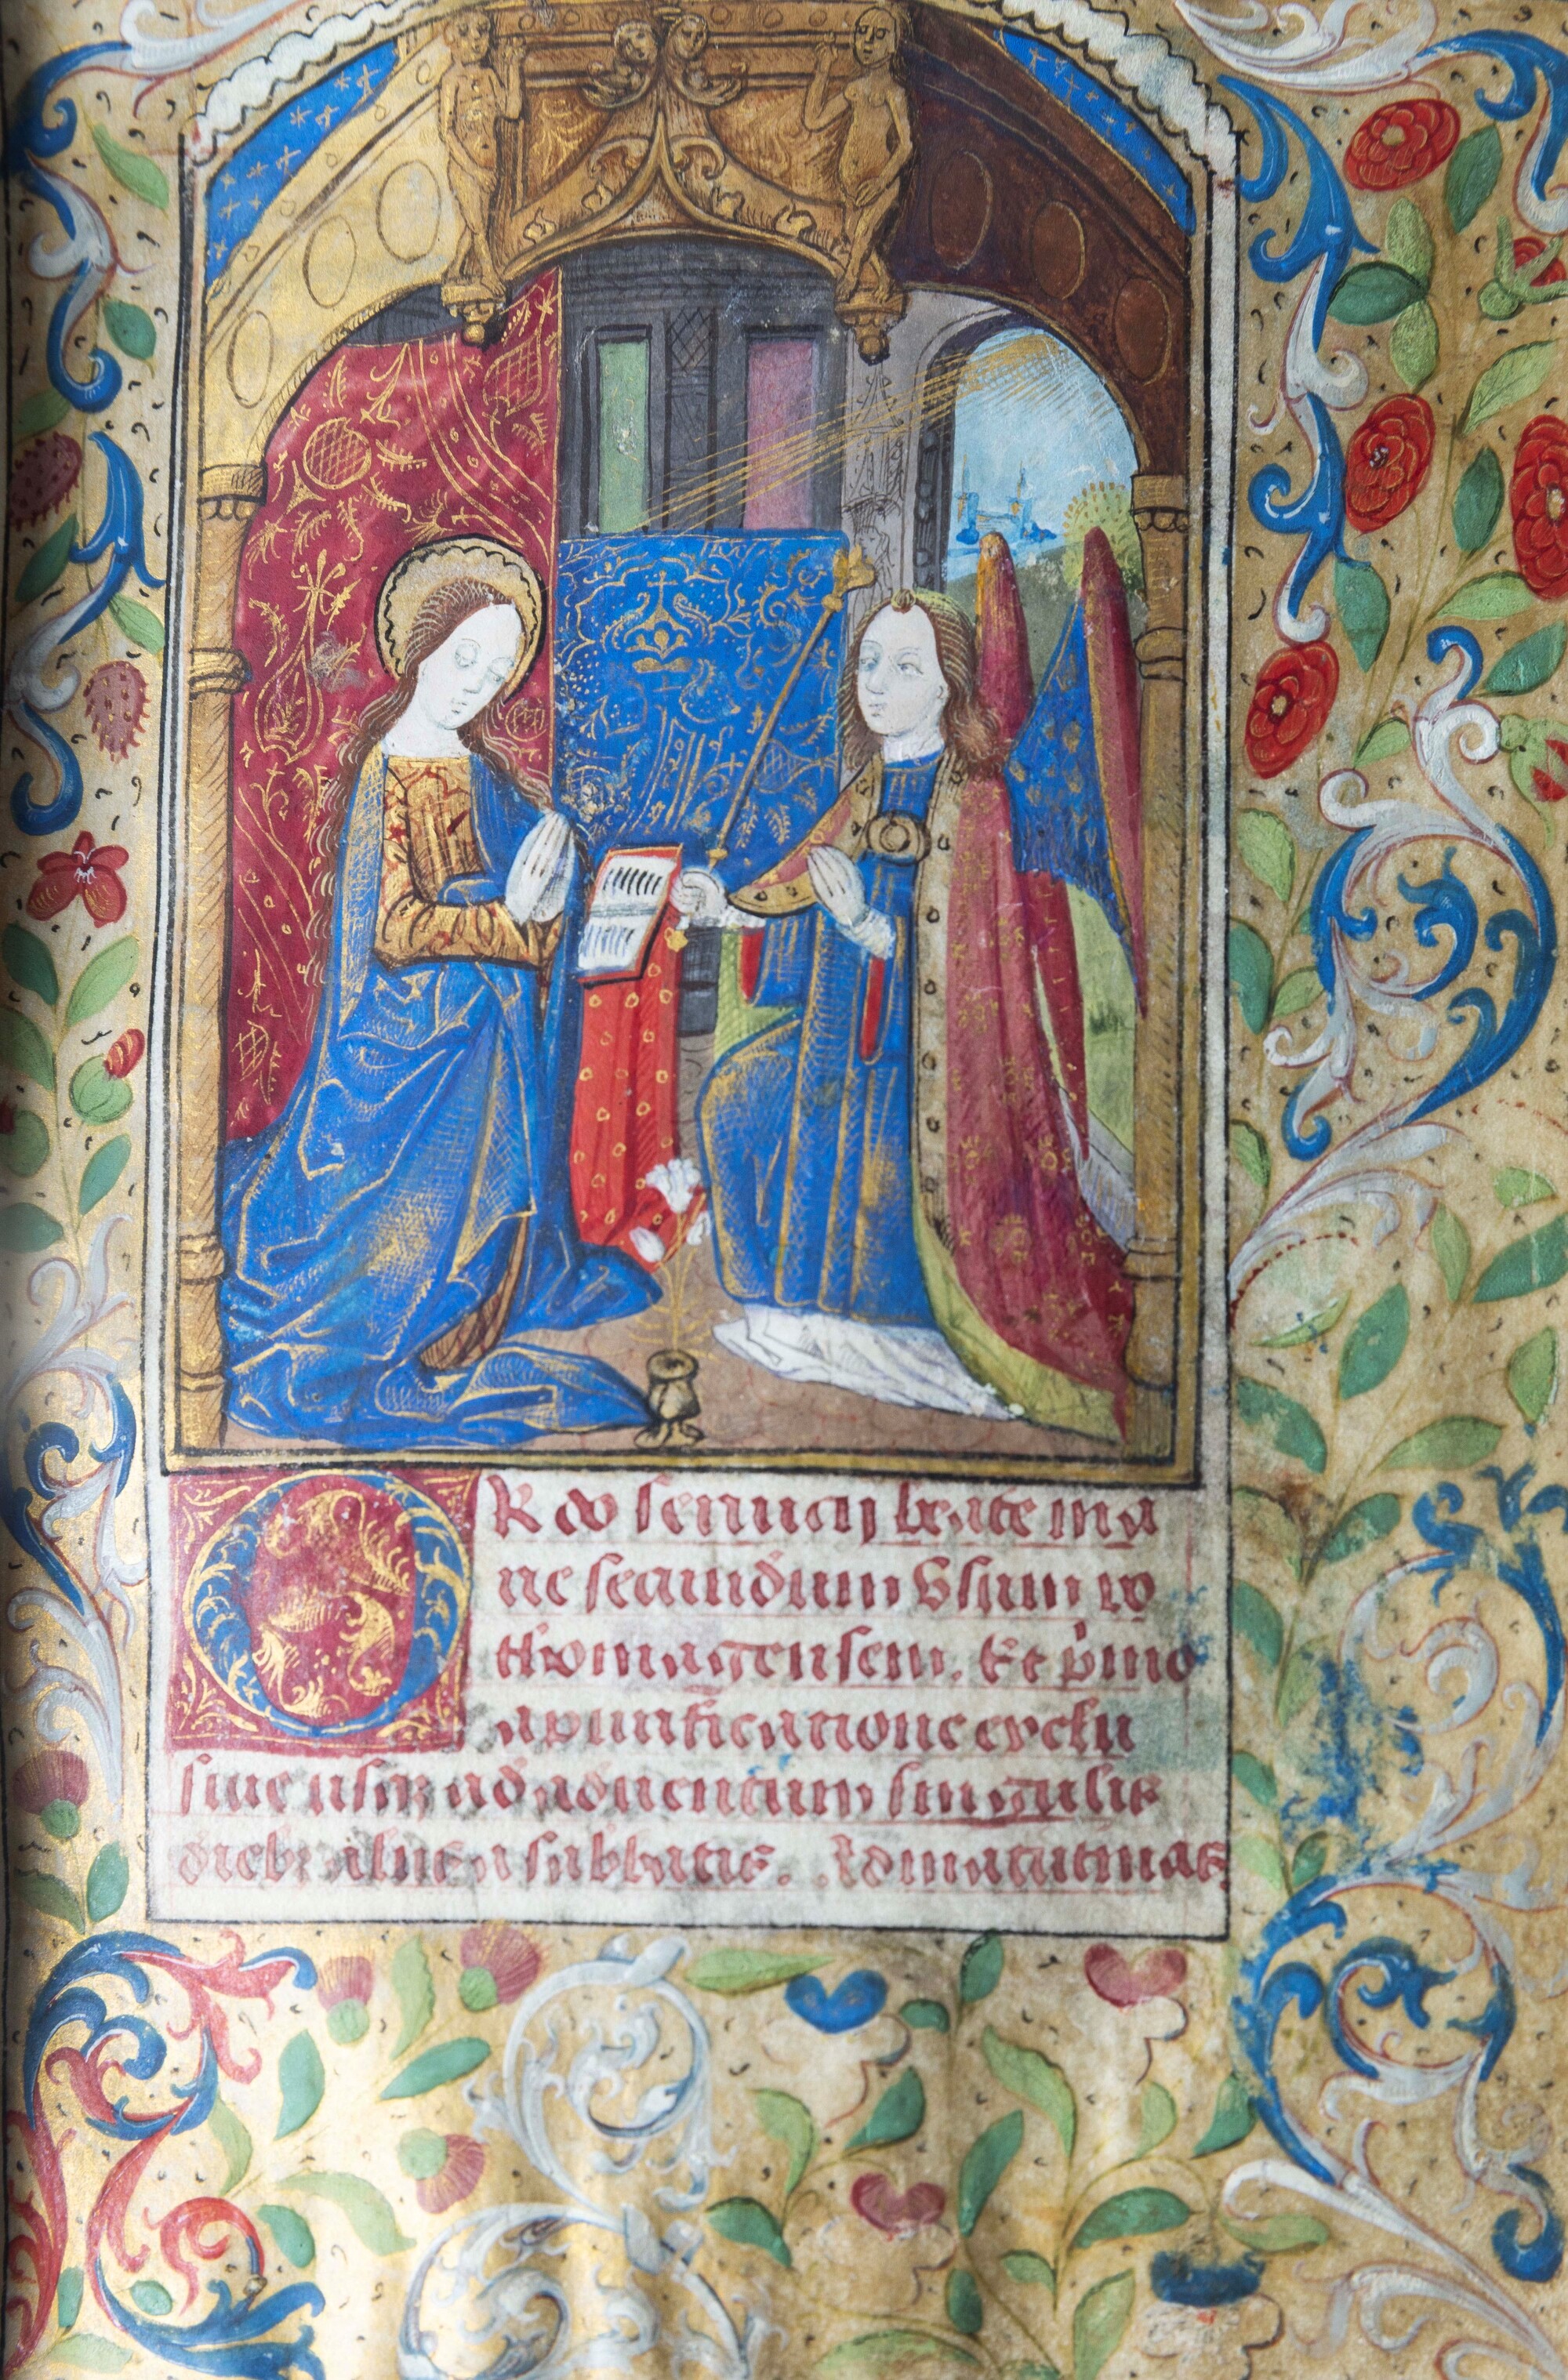 Ordo seruicij beate ma
rie secundum vsum ro
thomagensem. Et p̄mo
a purificatione
siue usq; ad aduentum singulis
dieb; sabbatis. Ad matutinas